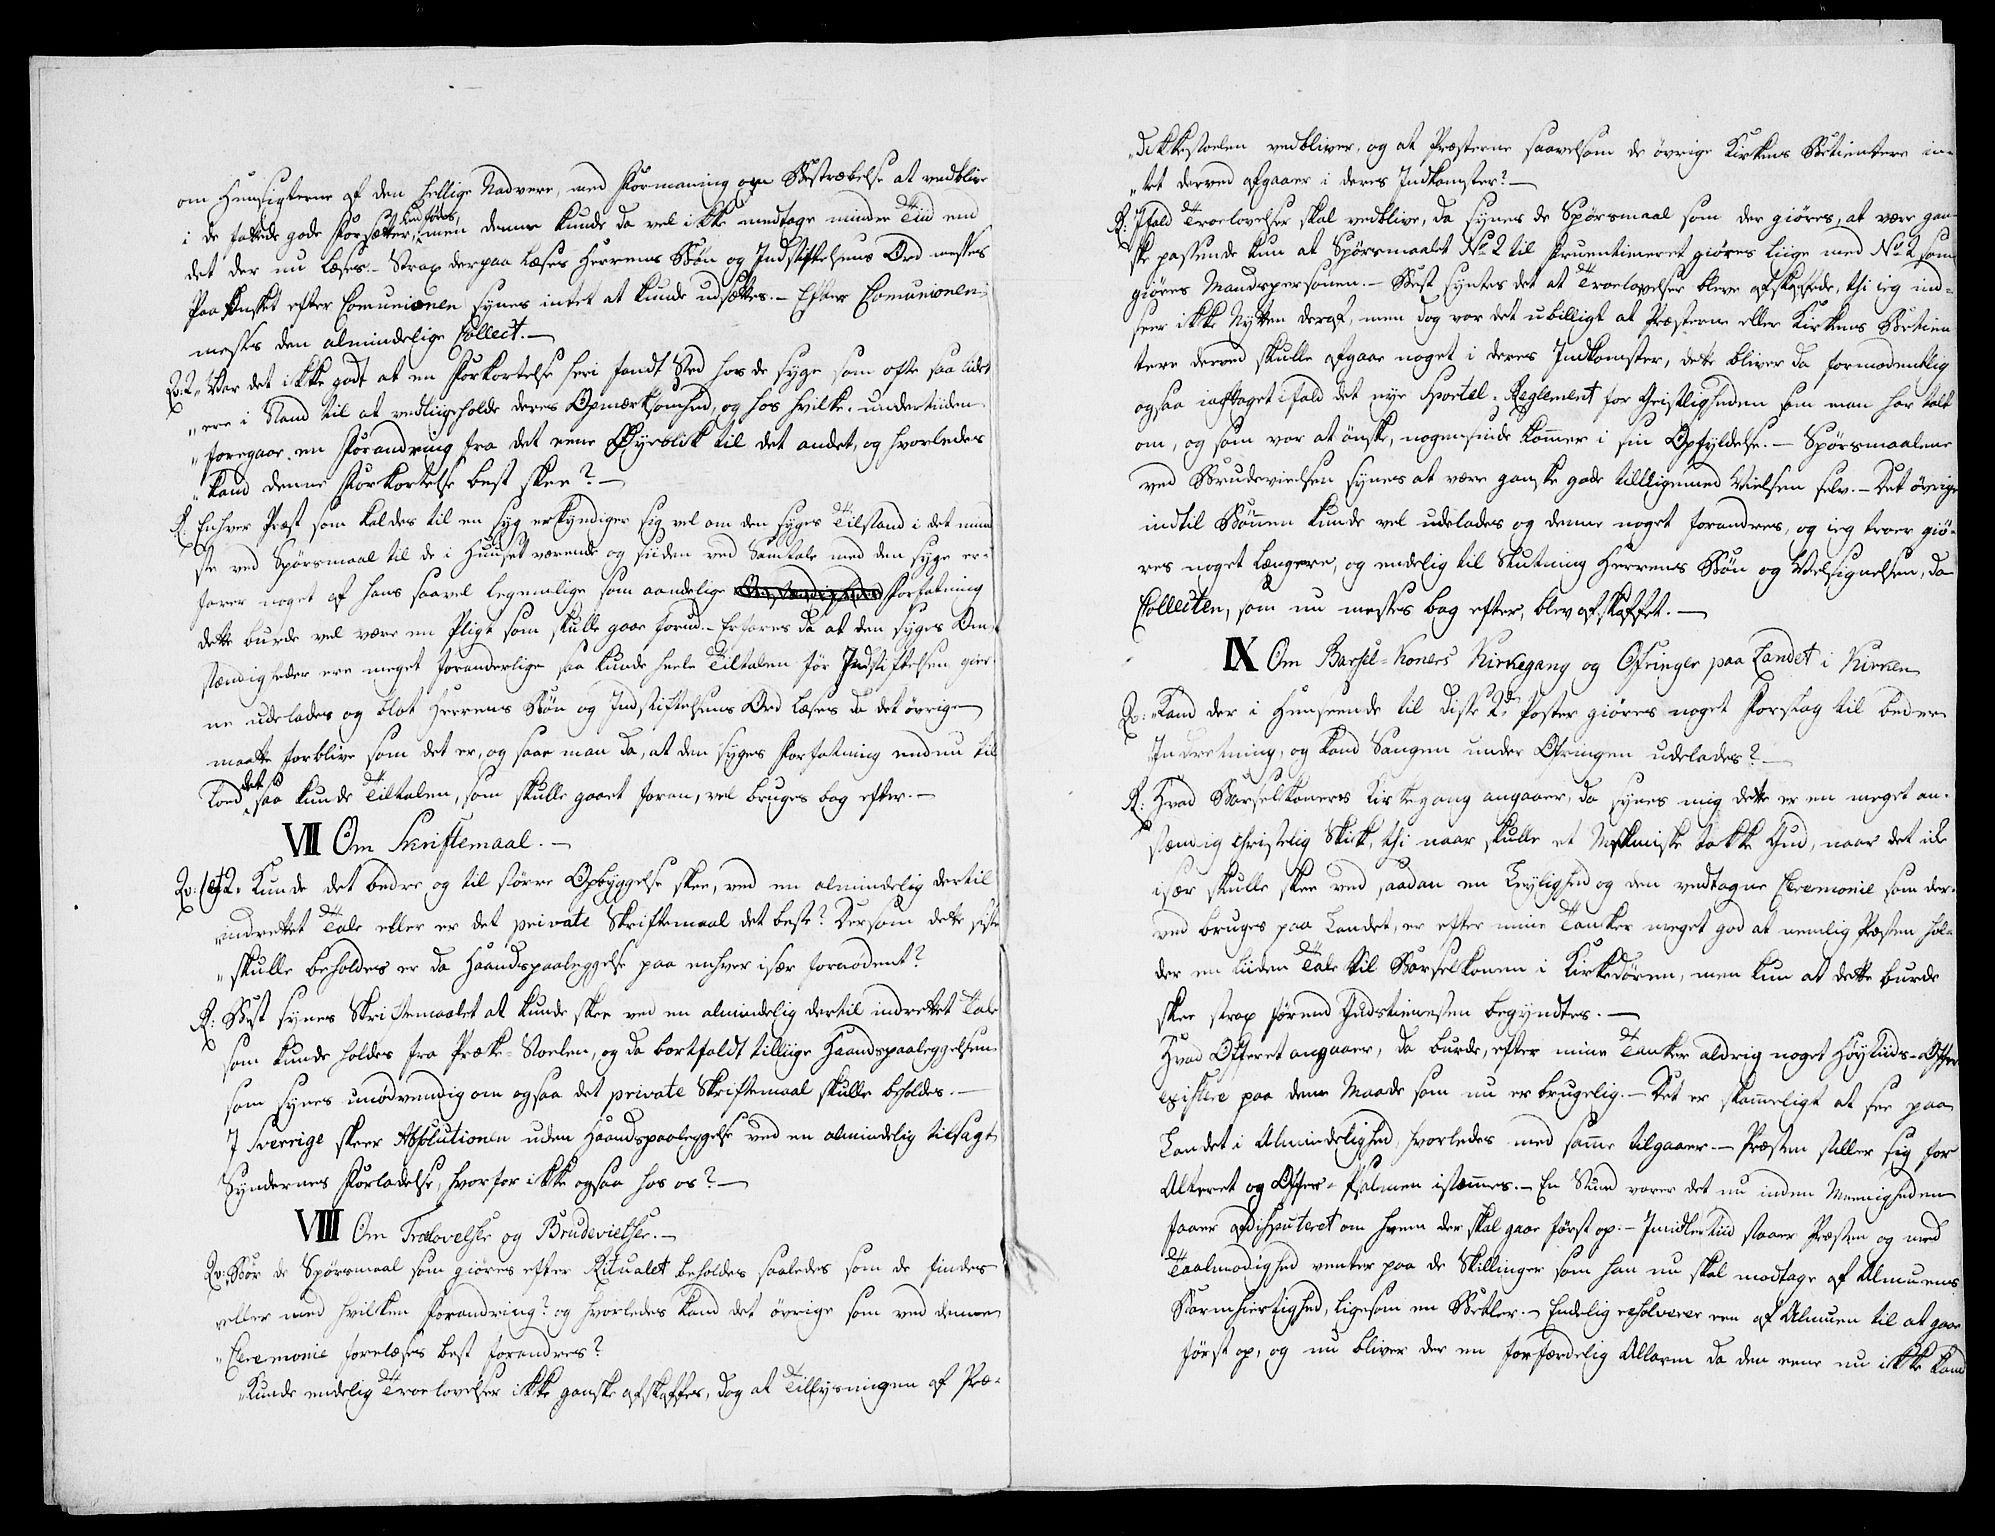 om Hensigterne af den hellige Nadvere, med Formaning og Bestræbelse at vedblive
i de fattede gode Forsætter, tilføres, men denne kunde da vel ikke medtage mindre Tiid end
det der nu læses. - Strax derpaa læses Herrens Bøn og Indstiftelsens Ord messes
Paa Ønsket efter Comunionen synes intet at kunde udsættes. - Efter Comunionen
messes den almindelige Collect. -
Qv: 2. "Var det ikke godt at en Forkortelse heri fandt Sted hos de syge som ofte saa lidet
"ere i Stand til at vedligeholde deres Opmærksomhed, og hos hvilke undertiden
"foregaar en Forandring fra det eene Øyeblik til det andet, og hvorledes
"kand denne Forkortelse best skee? -
R: Enhver Præst som kaldes til en syg erkyndiger sig vel om den syges Tilstand i det mind
ste ved Spørsmaal til de i Huuset værende og siiden ved Samtale med den syge er-
farer noget af hans saavel legemlige som aandelige Forfatning
dette burde vel være en Pligt som skulle gaae forud. - Erfares da at den syges Om-
stændigheder ere meget foranderlige saa kunde heele Tiltalen før Indstiftelsen gier-
ne udelades og blot Herrens Bøn og Indstiftelsens Ord læses da det øvrige
maatte forblive som det er, og saae man da, at den syges Forfatning endnu til
lod det saa kunde Tiltalen, som skulle gaaet foran, vel bruges bag efter. -
VII Om Skriftemaal. -
Qv: 1 et 2. Kunde det bedre og til større Opbyggelse skee, ved en almindelig dertil
"indrettet Tale eller er det private Skriftemaal det beste? Dersom dette siste
"skulle beholdes er da Haandspaaleggelse paa enhver især fornødent?
R: Best synes Skriftemaalet at kunde skee ved en almindelig dertil indrettet Tale
som kunde holdes fra Præke-Stoelen, og da bortfaldt tillige Haandspaaleggelsen
som synes unødvendig om ogsaa det private Skriftemaal skulle beholdes. -
I Sverrige skeer Absolutionen uden Haandspaaleggelse ved en almindelig tilsagt
Syndernes Forladelse, hvorfor ikke ogsaa hos os? -
VIII Om Trolovelse og Brudevielse. -
Qv: "Bør de Spørsmaal som giøres efter Ritualet beholdes saaledes som de findes
"eller med hvilken Forandring? og hvorledes kand det øvrige som ved denne
"Ceremonie forelæses best forandres?
"Kunde endelig Troelovelser ikke ganske afskaffes, dog at Tillysningen af Præ-
"dikkestoelen vedbliver, og at Præsterne saavelsom de øvrige Kirkens Betientere in-
"tet derved afgaaer i deres Indkomster? -
R: Ifald Troelovelser skal vedblive, da synes de Spørsmaal som der giøres, at være gan-
ske passende kun at Spørsmaalet No 2 til Fruentimeret giøres liige med No 2 som
giøres Mandspersonen. - Best syntes det at Troelovelser bleve afskaffede, thi ieg ind-
seer ikke Nytten deraf, men dog var det ubilligt at Præsterne eller Kirkens Betien
tere derved skulle afgaae noget i deres Indkomster, dette bliver da formodentlig
ogsaa iagttaget ifald det nye Sportel-Reglement for Geistligheden som man har talt
om, og som var at ønske, nogensinde kommer i sin Opfyldelse. - Spørsmaalene
ved Brudevielsen synes at være ganske gode tilligemed Vielsen selv. - Det øvrige
indtil Bønnen kunde vel udelades og denne noget forandres, og ieg troer giø-
res noget længere, og endelig til Slutning Herrens Bøn og Velsignelsen, da
Collecten, som nu messes bag efter, blev afskaffet. -
IX Om Barsel-Koners Kirkegang og Ofringer paa Landet i Kirken
Qv: "Kand der i Henseende til disse 2de Poster giøres noget Forslag til bedre
Indretning, og kand Sangen under Ofringen udelades? -
R: Hvad Barselkoners Kirkegang angaaer, da synes mig dette er en meget an-
stændig christelig Skik, thi naar skulle et Menniske takke Gud, naar det ike
især skulle skee ved saadan en Leylighed og den vedtagne Ceremonie som der-
ved bruges paa Landet, er efter mine Tanker meget god at nemlig Præsten hol-
der en liiden Tale til Barselkonen i Kirkedøren, men kun at dette burde
skee strax førend Gudstienesten begyndtes. -
Hvad Offeret angaaer, da burde, efter mine Tanker aldrig noget Høytiids-Offer
existere paa denne Maade som nu er brugelig. - Det er skammeligt at see paa
Landet i Almindelighed, hvorledes med samme tilgaaer. - Præsten stiller sig for
Alteret og Offer-Psalmen istemmes. - En Stund varer det nu inden Meenigheden
faaer afdisputeret om hvem der skal gaae først op. - Imidlertiid staaer Præsten og med
Taalmodighed venter paa de Skillinger som han nu skal modtage af Almuens
Barmhiertighed, ligesom en Betler. - Endelig resolverer een af Almuen til at gaae
først op, og nu bliver der en forfærdelig Allarm da den eene nu ikke kand